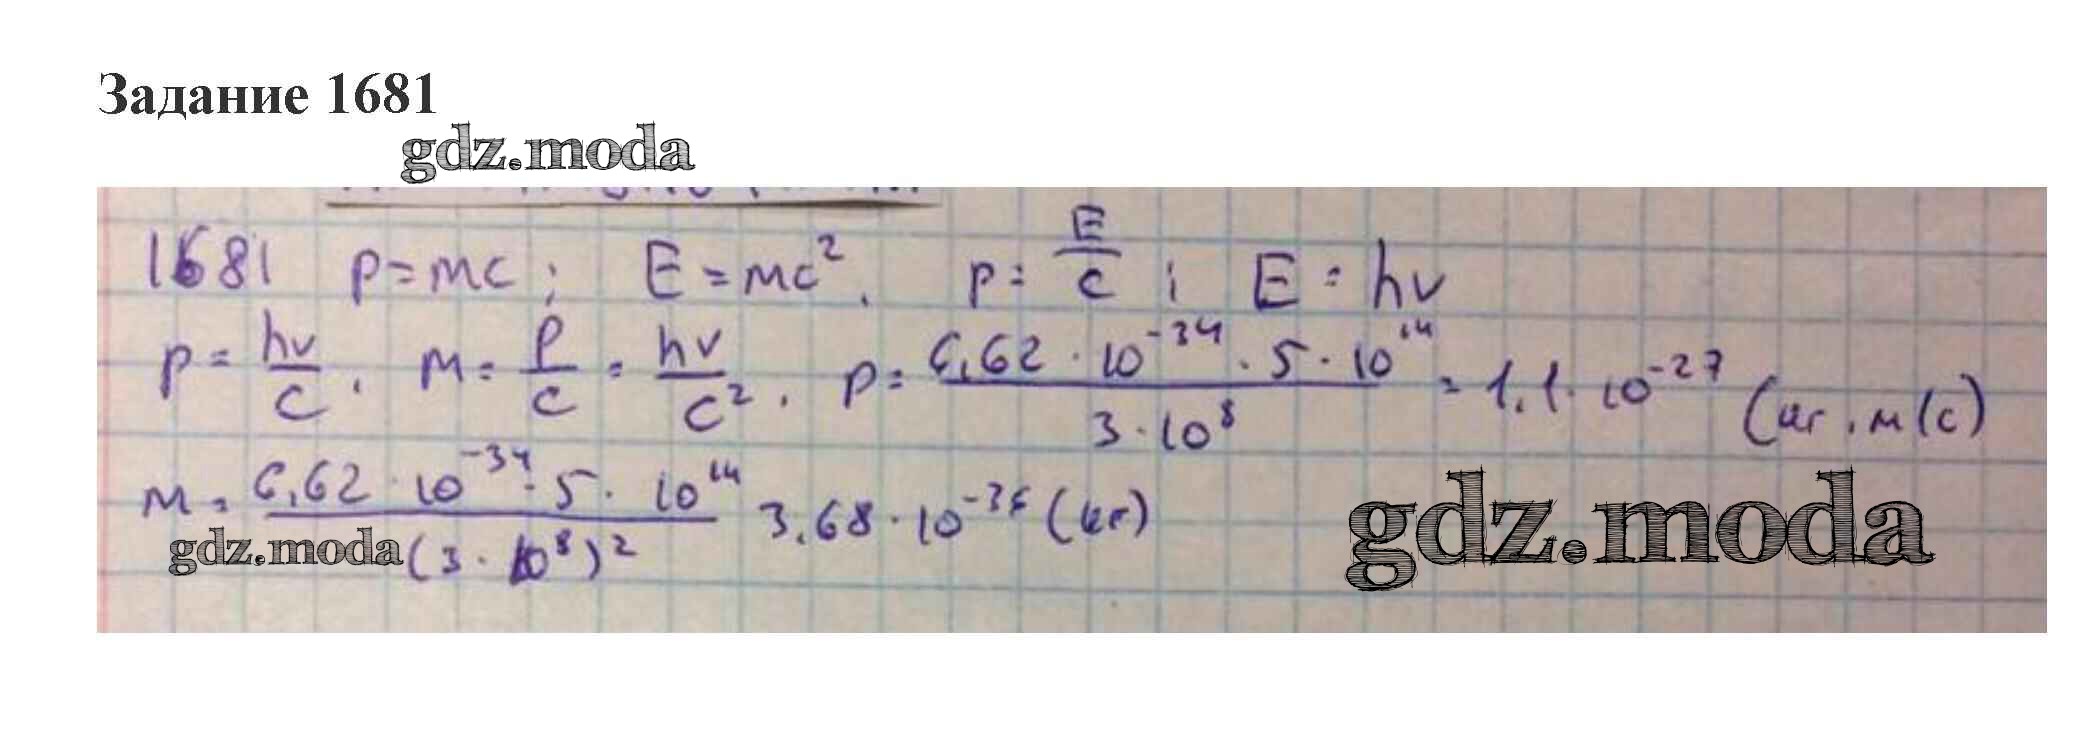 Задание 1681
gdz.moda
1681 p=mc; E=mc². p=E/c; E=hν
p=hν/c. m=p/c=hν/c². p=6,62·10⁻³⁴·5·10¹⁴/3·10⁸=1,1·10⁻²⁷ (кг·м/с)
m=6,62·10⁻³⁴·5·10¹⁴/(3·10⁸)² 3,68·10⁻³⁶ (кг)
gdz.moda
gdz.moda